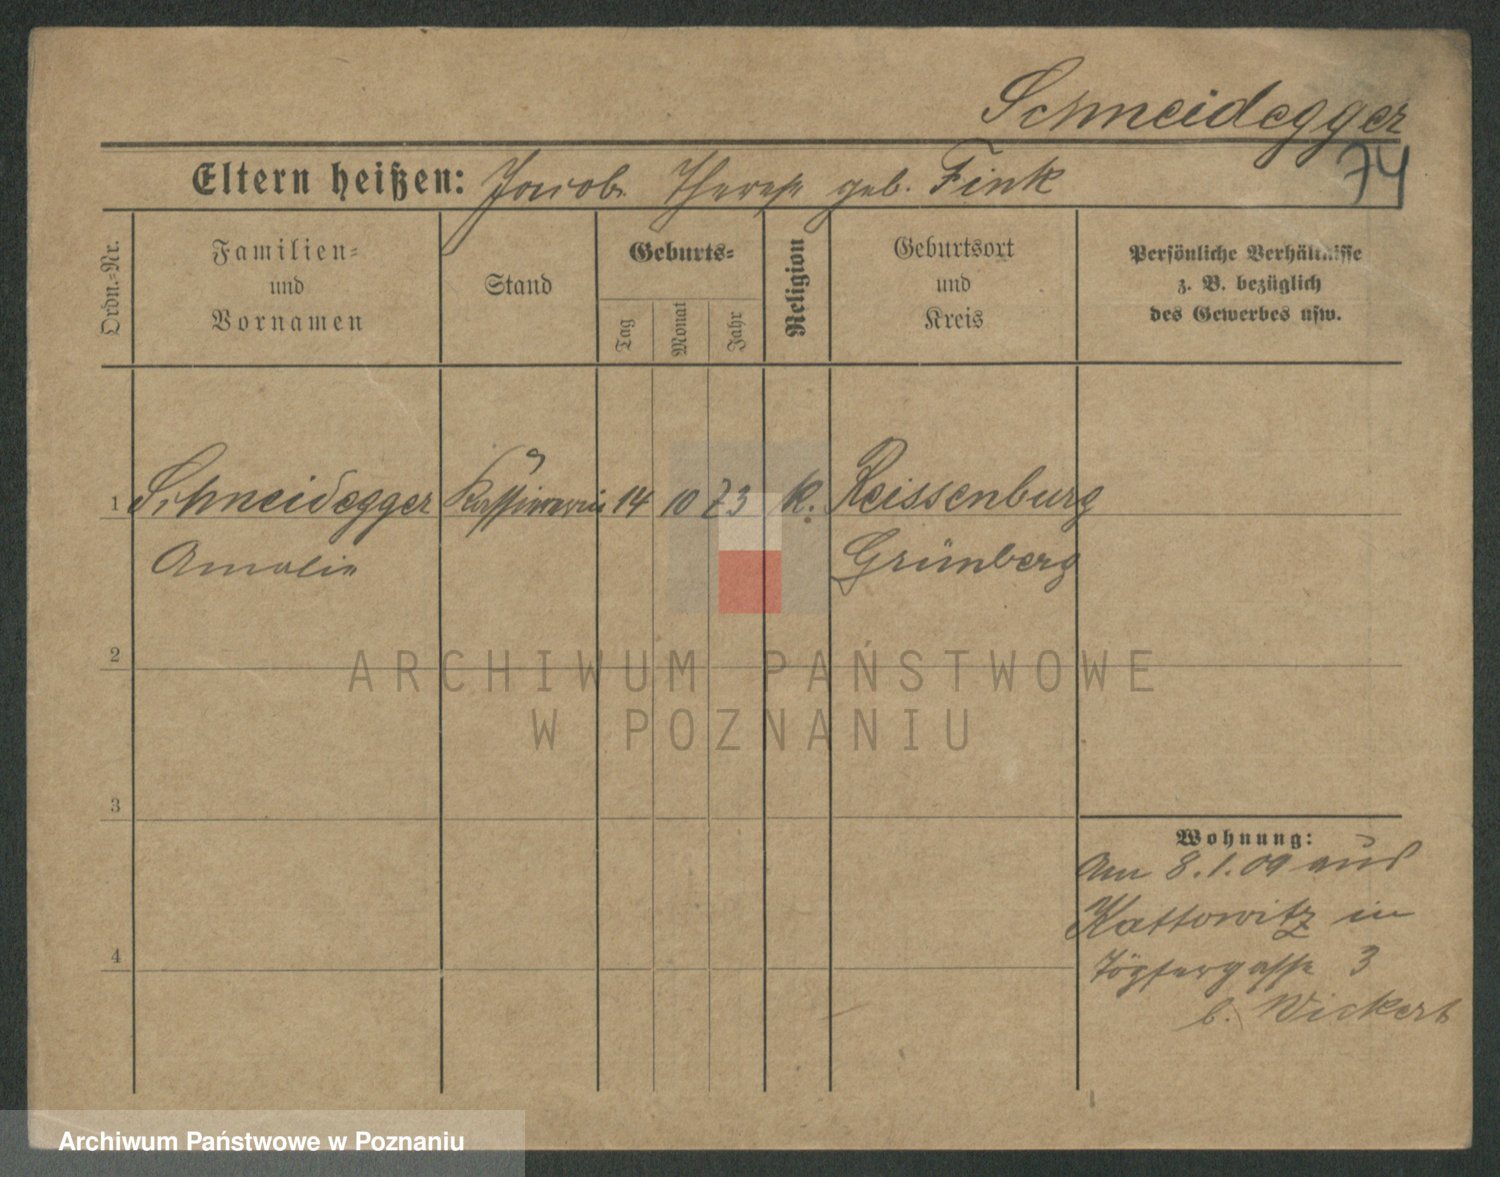 Schneidegger
74
Eltern heißen: Jacob Therese geb. Fink
Ordn.-Nr.
Familien-
und
Vornamen
Stand
Geburts-
Tag
Monat
Jahr
Religion
Geburtsort
und
Kreis
Persönliche Verhältnisse
z. B. bezüglich
des Gewerbes usw.
1 Schneidegger Kassiererin 14 10 73 k. Reissenburg
Amalie Grünberg
2
ARCHIWUM PAŃSTWOWE
W POZNANIU
3
Wohnung:
Am 8.1.09 aus
Kattowitz in
4
Töpfergasse 3
b. Wickert
Archiwum Państwowe w Poznaniu